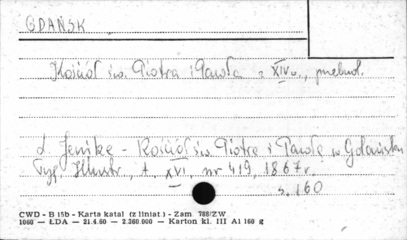 GDAŃSK
Kościół św. Piotra i Pawła z XIV w., przebud.
L. Jenike - Kościół św. Piotra i Pawła w Gdańsku
Tyg. Illustr., t. XVI, nr 419, 1867 r.
s. 160
CWD - B 15b - Karta katal (z liniat.) - Zam. 788/ZW
1060 — ŁDA — 21.4.60 — 2.360.000 — Karton kl. III A1 160 g